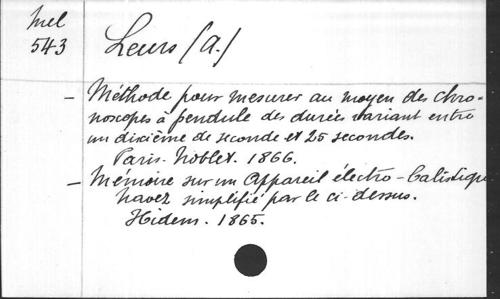 Mel
543
Leurs (A.)
— Méthode pour mesurer au moyen des chro-
noscopes à pendule des durées variant entre
un dixième de seconde et 25 secondes.
Paris. Noblet. 1866.
— Mémoire sur un Appareil électro-balistique
Navez simplifié par le ci-dessus.
Hidem. 1865.